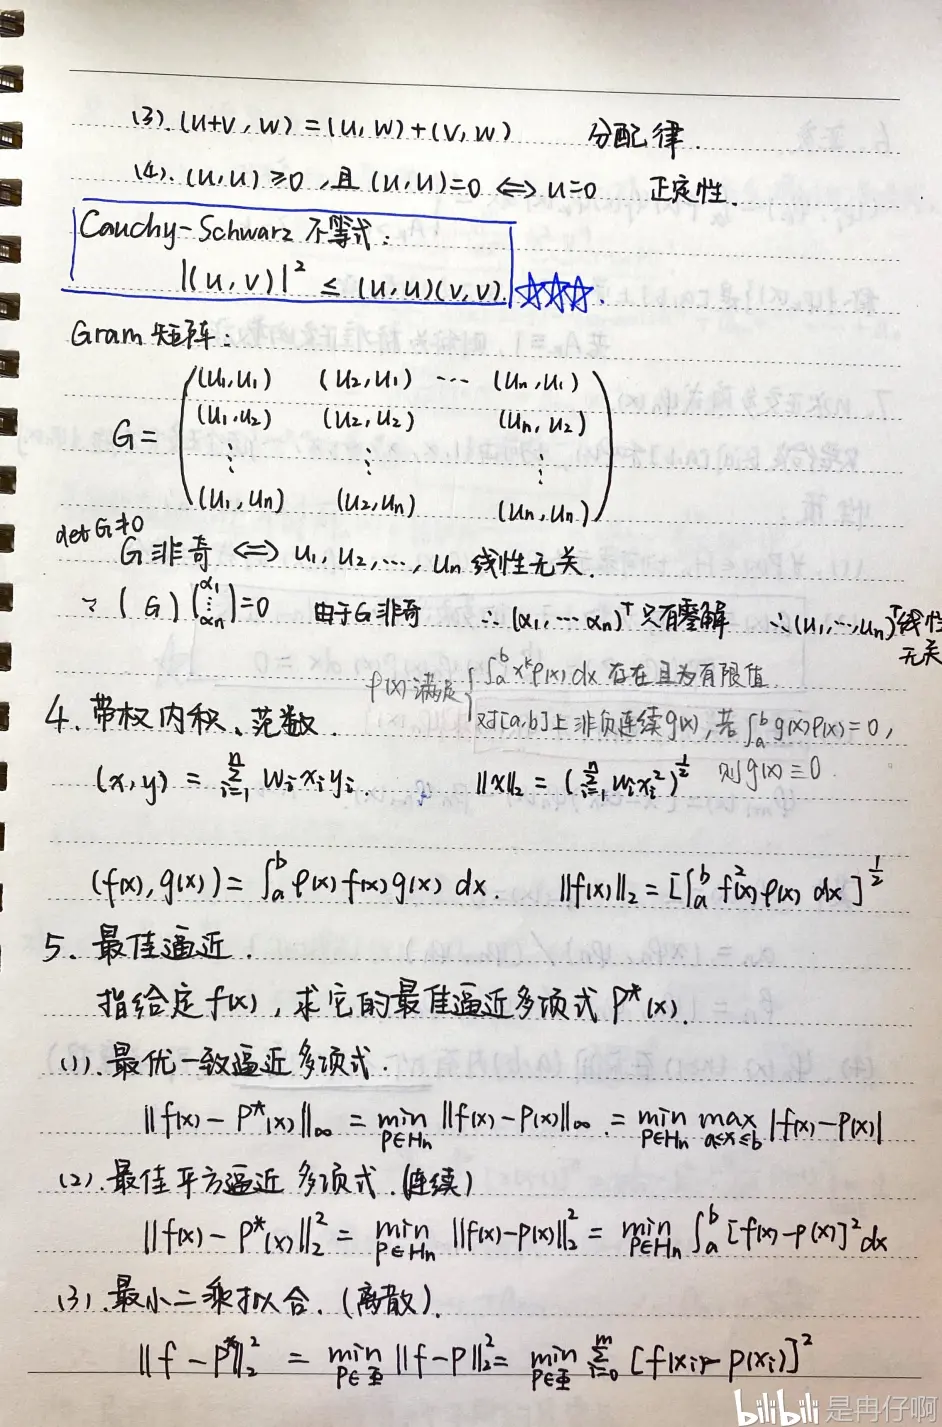 (3). (u+v, w) = (u, w) + (v, w) 分配律.
(4). (u, u) ≥ 0, 且 (u, u) = 0 ⟺ u = 0 正定性.
Cauchy-Schwarz 不等式:
|(u, v)|² ≤ (u, u)(v, v). ☆☆☆.
Gram 矩阵:
(u₁, u₁) (u₂, u₁) ⋯ (uₙ, u₁)
(u₁, u₂) (u₂, u₂) (uₙ, u₂)
G =
⋮ ⋮ ⋮
(u₁, uₙ) (u₂, uₙ) (uₙ, uₙ)
det G ≠ 0
G 非奇 ⟺ u₁, u₂, ⋯, uₙ 线性无关.
∵ (G) (α₁ ⋮ αₙ) = 0 由于G非奇 ∴ (α₁, ⋯ αₙ)ᵀ 只有零解 ∴ (u₁, ⋯, uₙ)ᵀ 线性
无关
ρ(x) 满足 { ∫ₐᵇ xᵏρ(x) dx 存在且为有限值
4. 带权内积、范数. 对[a,b]上非负连续g(x), 若 ∫ₐᵇ g(x)ρ(x) = 0,
则 g(x) ≡ 0.
(x, y) = Σᵢ₌₁ⁿ wᵢxᵢyᵢ. ‖x‖₂ = (Σᵢ₌₁ⁿ wᵢxᵢ²)^½
(f(x), g(x)) = ∫ₐᵇ ρ(x) f(x) g(x) dx. ‖f(x)‖₂ = [∫ₐᵇ f²(x) ρ(x) dx]^½
5. 最佳逼近.
指给定 f(x), 求它的最佳逼近多项式 P*(x).
(1). 最优一致逼近多项式.
‖f(x) - P*(x)‖∞ = min_{P∈Hₙ} ‖f(x) - P(x)‖∞ = min_{P∈Hₙ} max_{a≤x≤b} |f(x) - P(x)|
(2). 最佳平方逼近多项式. (连续)
‖f(x) - P*(x)‖₂² = min_{P∈Hₙ} ‖f(x) - p(x)‖₂² = min_{P∈Hₙ} ∫ₐᵇ [f(x) - p(x)]² dx
(3). 最小二乘拟合. (离散).
‖f - P*‖₂² = min_{P∈Φ} ‖f - p‖₂² = min_{P∈Φ} Σᵢ₌₀ᵐ [f(xᵢ) - p(xᵢ)]²
bilibili 是冉仔啊